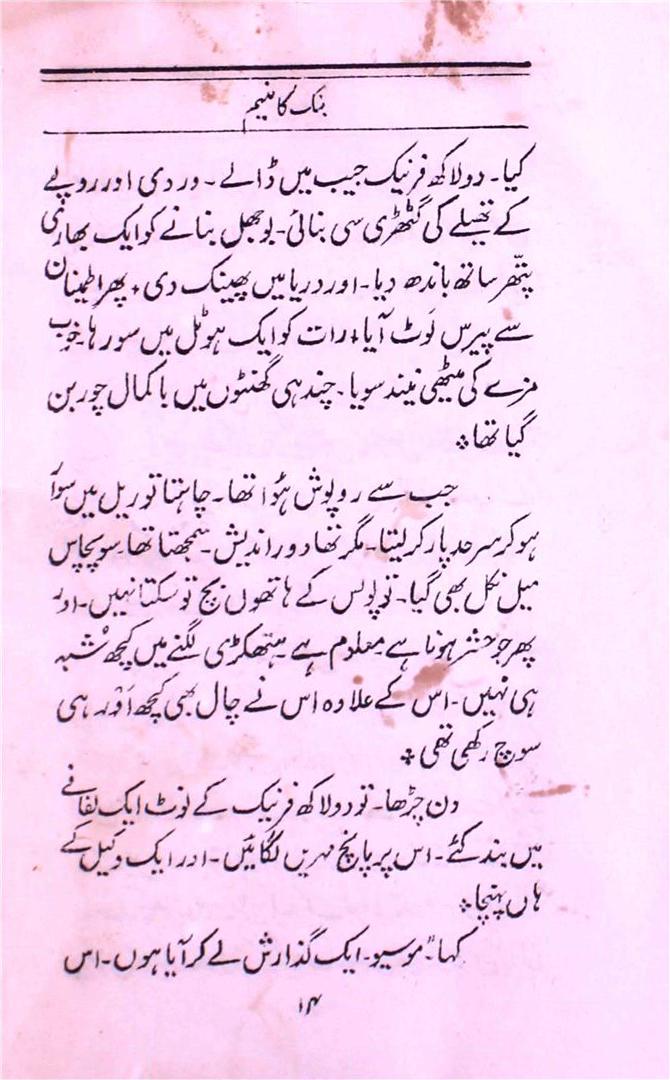 بنک کا منیم
کیا۔ دو لاکھ فرنیک جیب میں ڈالے۔ وردی اور روپے
کے تھیلے کی گٹھڑی سی بنائی۔ بوجھل بنانے کو ایک بھاری
پتھر ساتھ باندھ دیا۔ اور دریا میں پھینک دی ٭ پھر اطمینان
سے پیرس لَوٹ آیا ٭ رات کو ایک ہوٹل میں سو رہا۔ خوب
مزے کی میٹھی نیند سویا۔ چند ہی گھنٹوں میں باکمال چور بن
گیا تھا ٭
جب سے روپوش ہؤا تھا۔ چاہتا تو ریل میں سوار
ہو کر سرحد پار کر لیتا۔ مگر تھا دور اندیش۔ سمجھتا تھا۔ سو پچاس
میل نکل بھی گیا۔ تو پولس کے ہاتھوں بچ تو سکتا نہیں۔ اور
پھر جو حشر ہونا ہے معلوم ہے ہتھکڑی لگنے میں کچھ شُبہ
ہی نہیں۔ اس کے علاوہ اس نے چال بھی کچھ اَوْر ہی
سوچ رکھی تھی ٭
دن چڑھا۔ تو دو لاکھ فرنیک کے نوٹ ایک لفافے
میں بند کئے۔ اس پر پانچ مہریں لگائیں۔ اور ایک وکیل کے
ہاں پہنچا ٭
کہا۔ "موسیو۔ ایک گذارش لے کر آیا ہوں۔ اس
۱۴